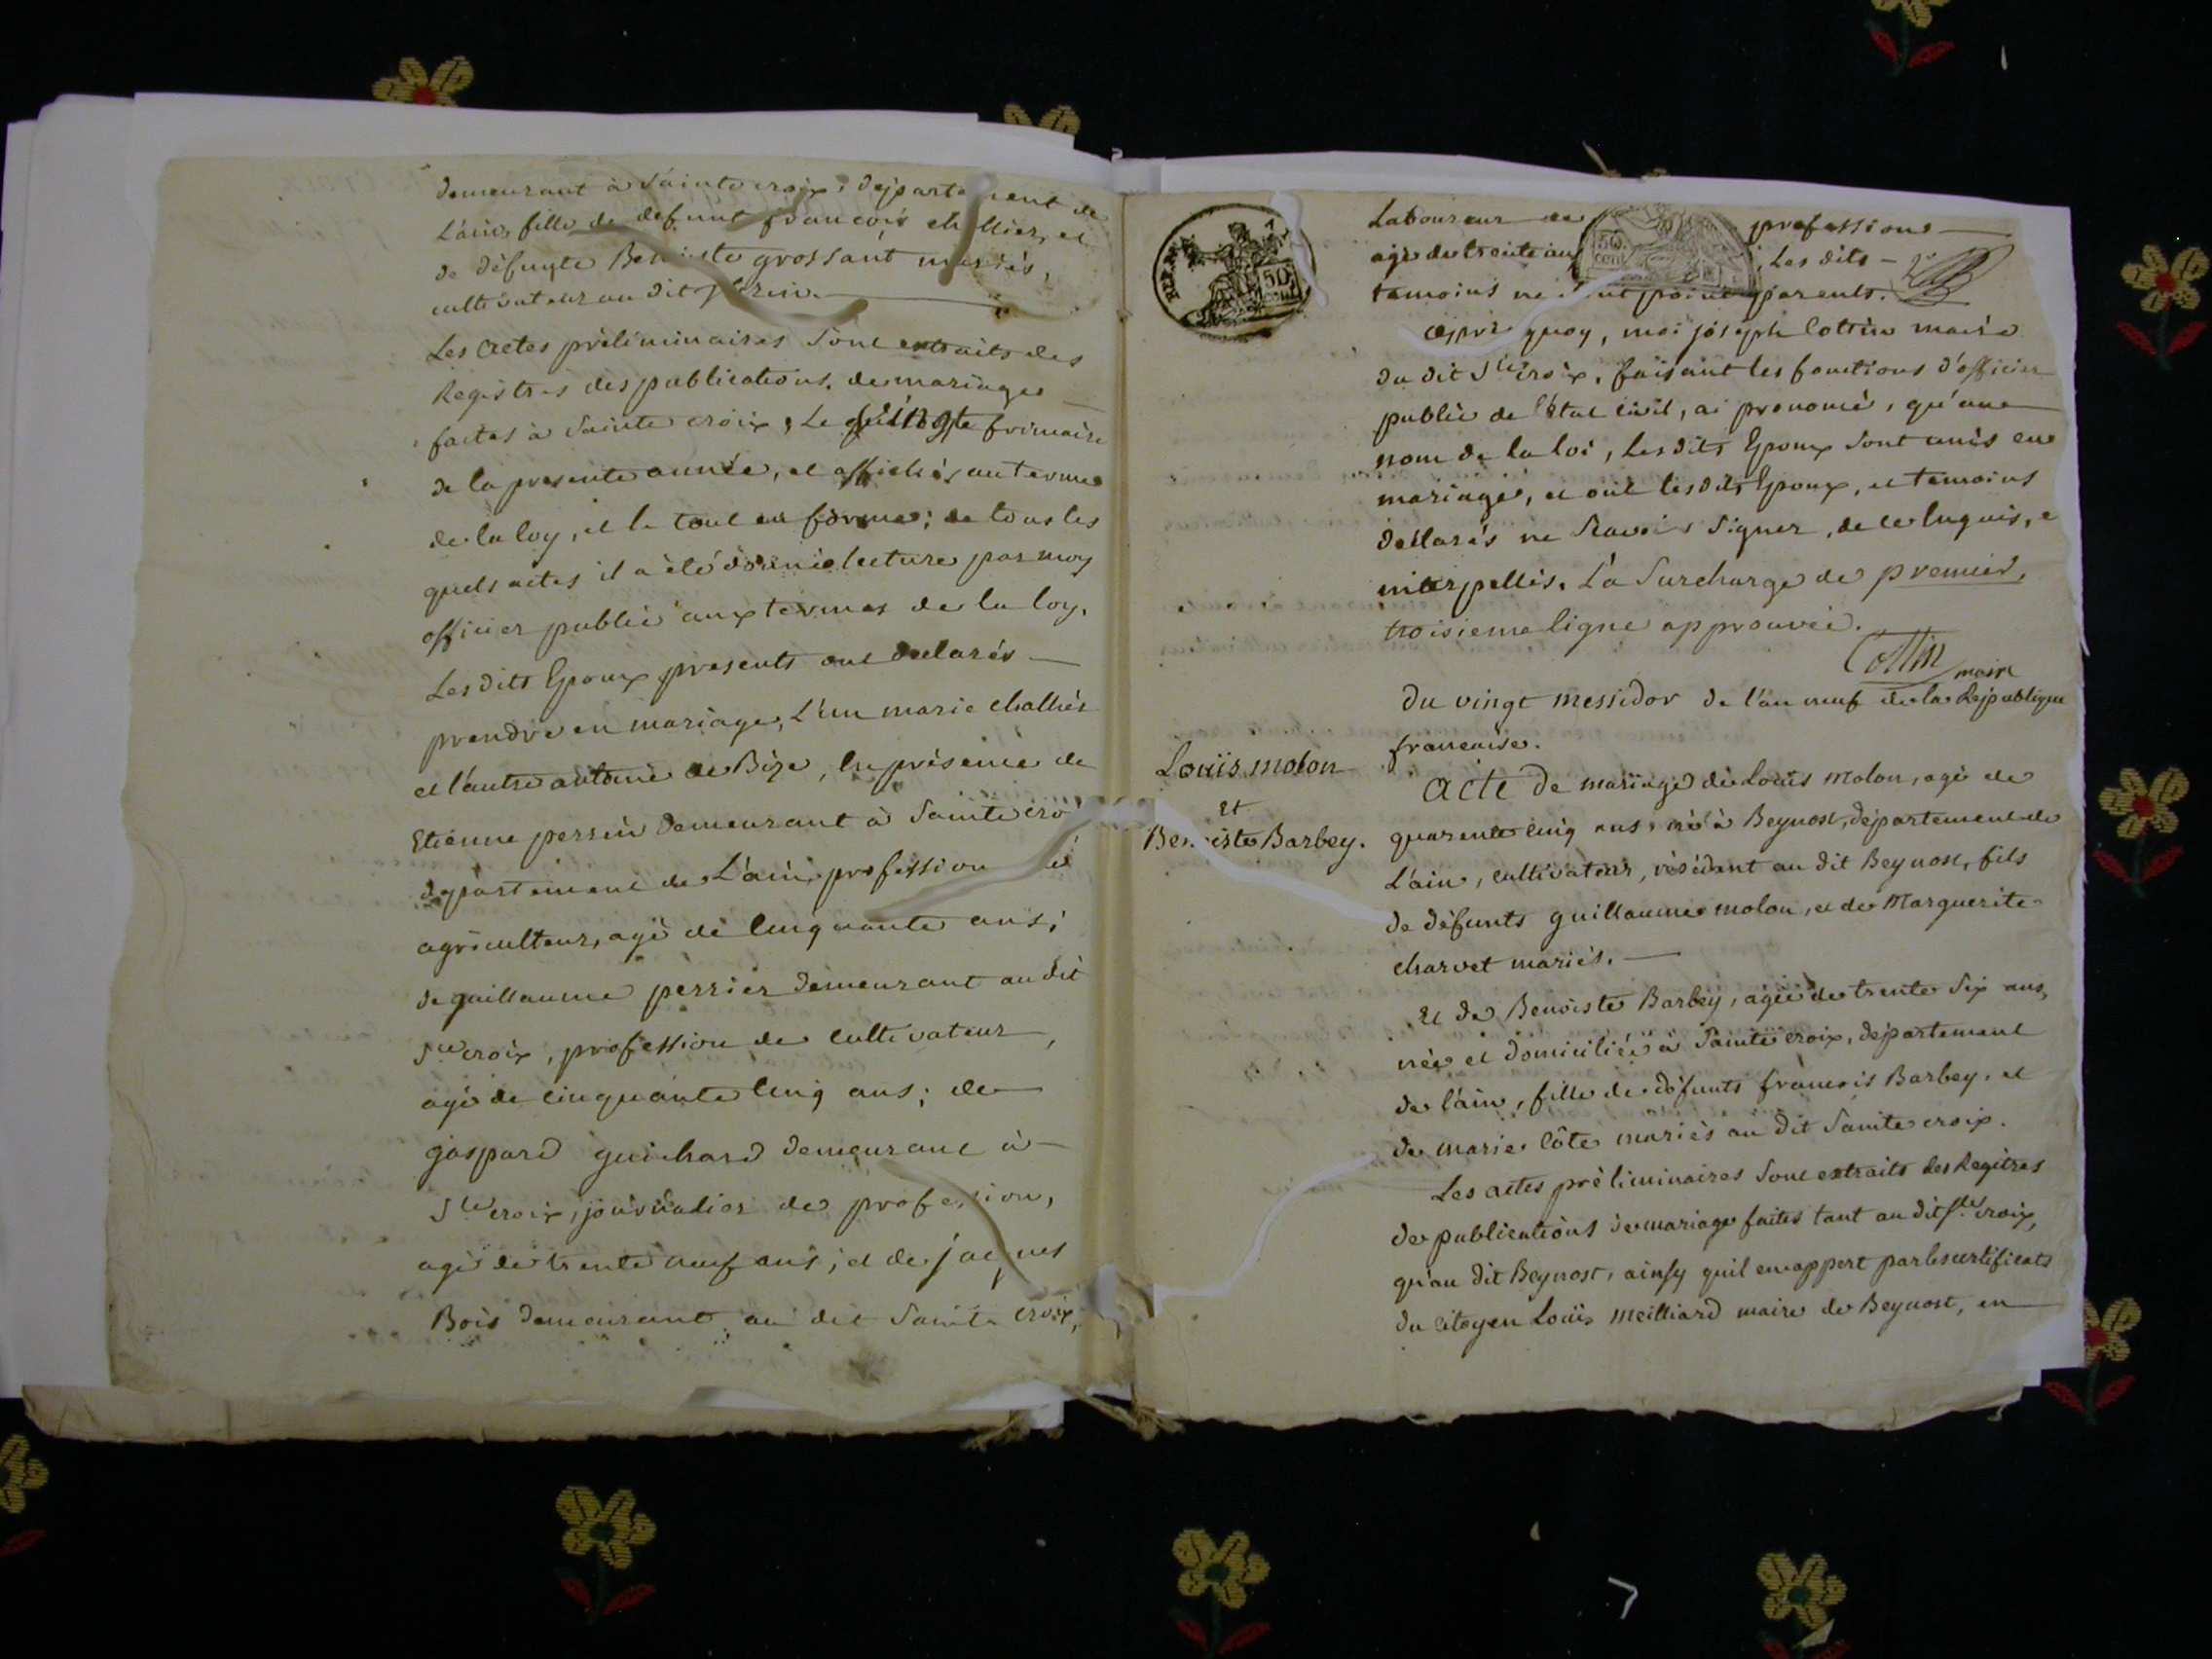 demeurant à Sainte croix, departement de
L'ain, fille de defunt francois challier, et
de défunte Benoiste grossant mariés,
cultivateur au dit
Les actes préliminaires sont extraits des
Registres des publications de mariage
faites à Sainte croix, Le frimaire
de la presente année, et affichés au terme
de la loy, et le tout en forme; de tous les
quels actes il a été donné lecture par moy
officier public aux termes de la loy.
Les dits Epoux presents ont declarés
prendre en mariage, L'un marie challier
et l'autre antoine de Bize, en présence de
Etienne perrin demeurant à Sainte cro
departement de L'ain, profession d
agriculteur, agé de cinquante ans;
de guillaume perrier demeurant au dit
Ste croix, profession de cultivateur,
agé de cinquante cinq ans; de
gaspard guichard demeurant à
Ste croix, journalier de profession,
agé de trente neuf ans; et de jacques
Bois demeurant au dit Sainte croix,
50 cent
Laboureur de professions
agé de trente ans; Les dits
temoins ne sont point parents.
après quoy, moi joseph Cottin maire
du dit Ste croix, faisant les fonctions d'officier
public de l'état civil, ai prononcé, qu'au
nom de la loi, Les dits Epoux sont unis en
mariage, et ont les dits Epoux, et temoins
declarés ne Scavoir Signer, de ce enquis, e
interpellés. La Surcharge de premier,
troisieme ligne approuvée.
Cottin maire
Du vingt messidor de l'an neuf de la Republique
francaise.
Louis molon
et
Benoiste Barbey.
Acte de mariage de Louis molon, agé de
quarente cinq ans, né à Beynost, département de
L'ain, cultivateur, résidant au dit Beynost, fils
de défunts guillaume molon, et de Marguerite
charvet mariés.
Et de Benoiste Barbey, agée de trente Six ans,
née et domiciliée à Sainte croix, departement
de l'ain, fille de défunts francois Barbey, et
de marie Côte mariés au dit Sainte croix.
Les actes préliminaires Sont extraits des Regitres
de publications de mariage faites tant au dit Ste Croix,
qu'au dit Beynost, ainsy quil en appert par les certificats
du citoyen Louis meilliard maire de Beynost, en